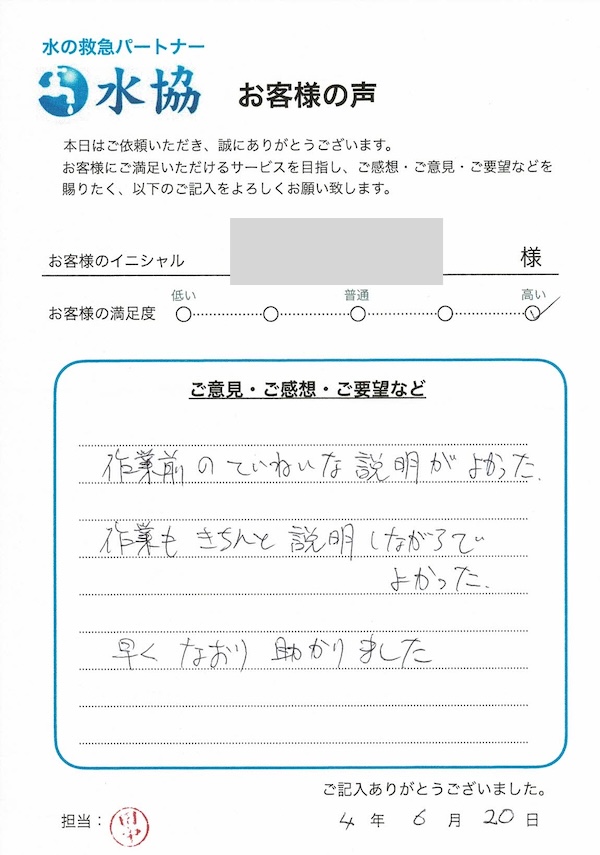 水の救急パートナー
水協 お客様の声
本日はご依頼いただき、誠にありがとうございます。
お客様にご満足いただけるサービスを目指し、ご感想・ご意見・ご要望などを
賜りたく、以下のご記入をよろしくお願い致します。
お客様のイニシャル 様
低い 普通 高い
お客様の満足度
ご意見・ご感想・ご要望など
作業前のていねいな説明がよかった.
作業もきちんと説明しながらで
よかった.
早くなおり助かりました
ご記入ありがとうございました。
担当： 4 年 6 月 20 日